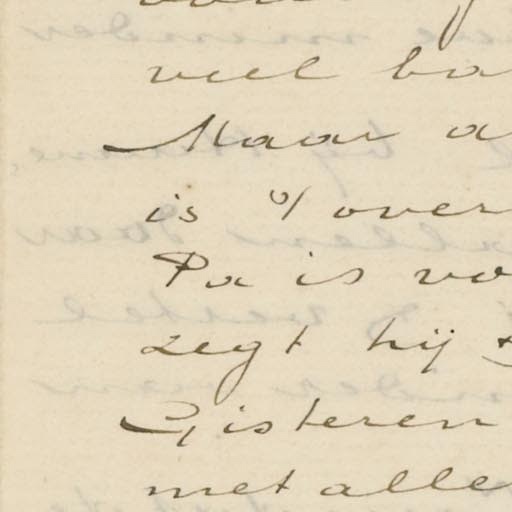 veel ba
Maar a
is o/over
Pa is vo
zegt hij
Gisteren
met alle